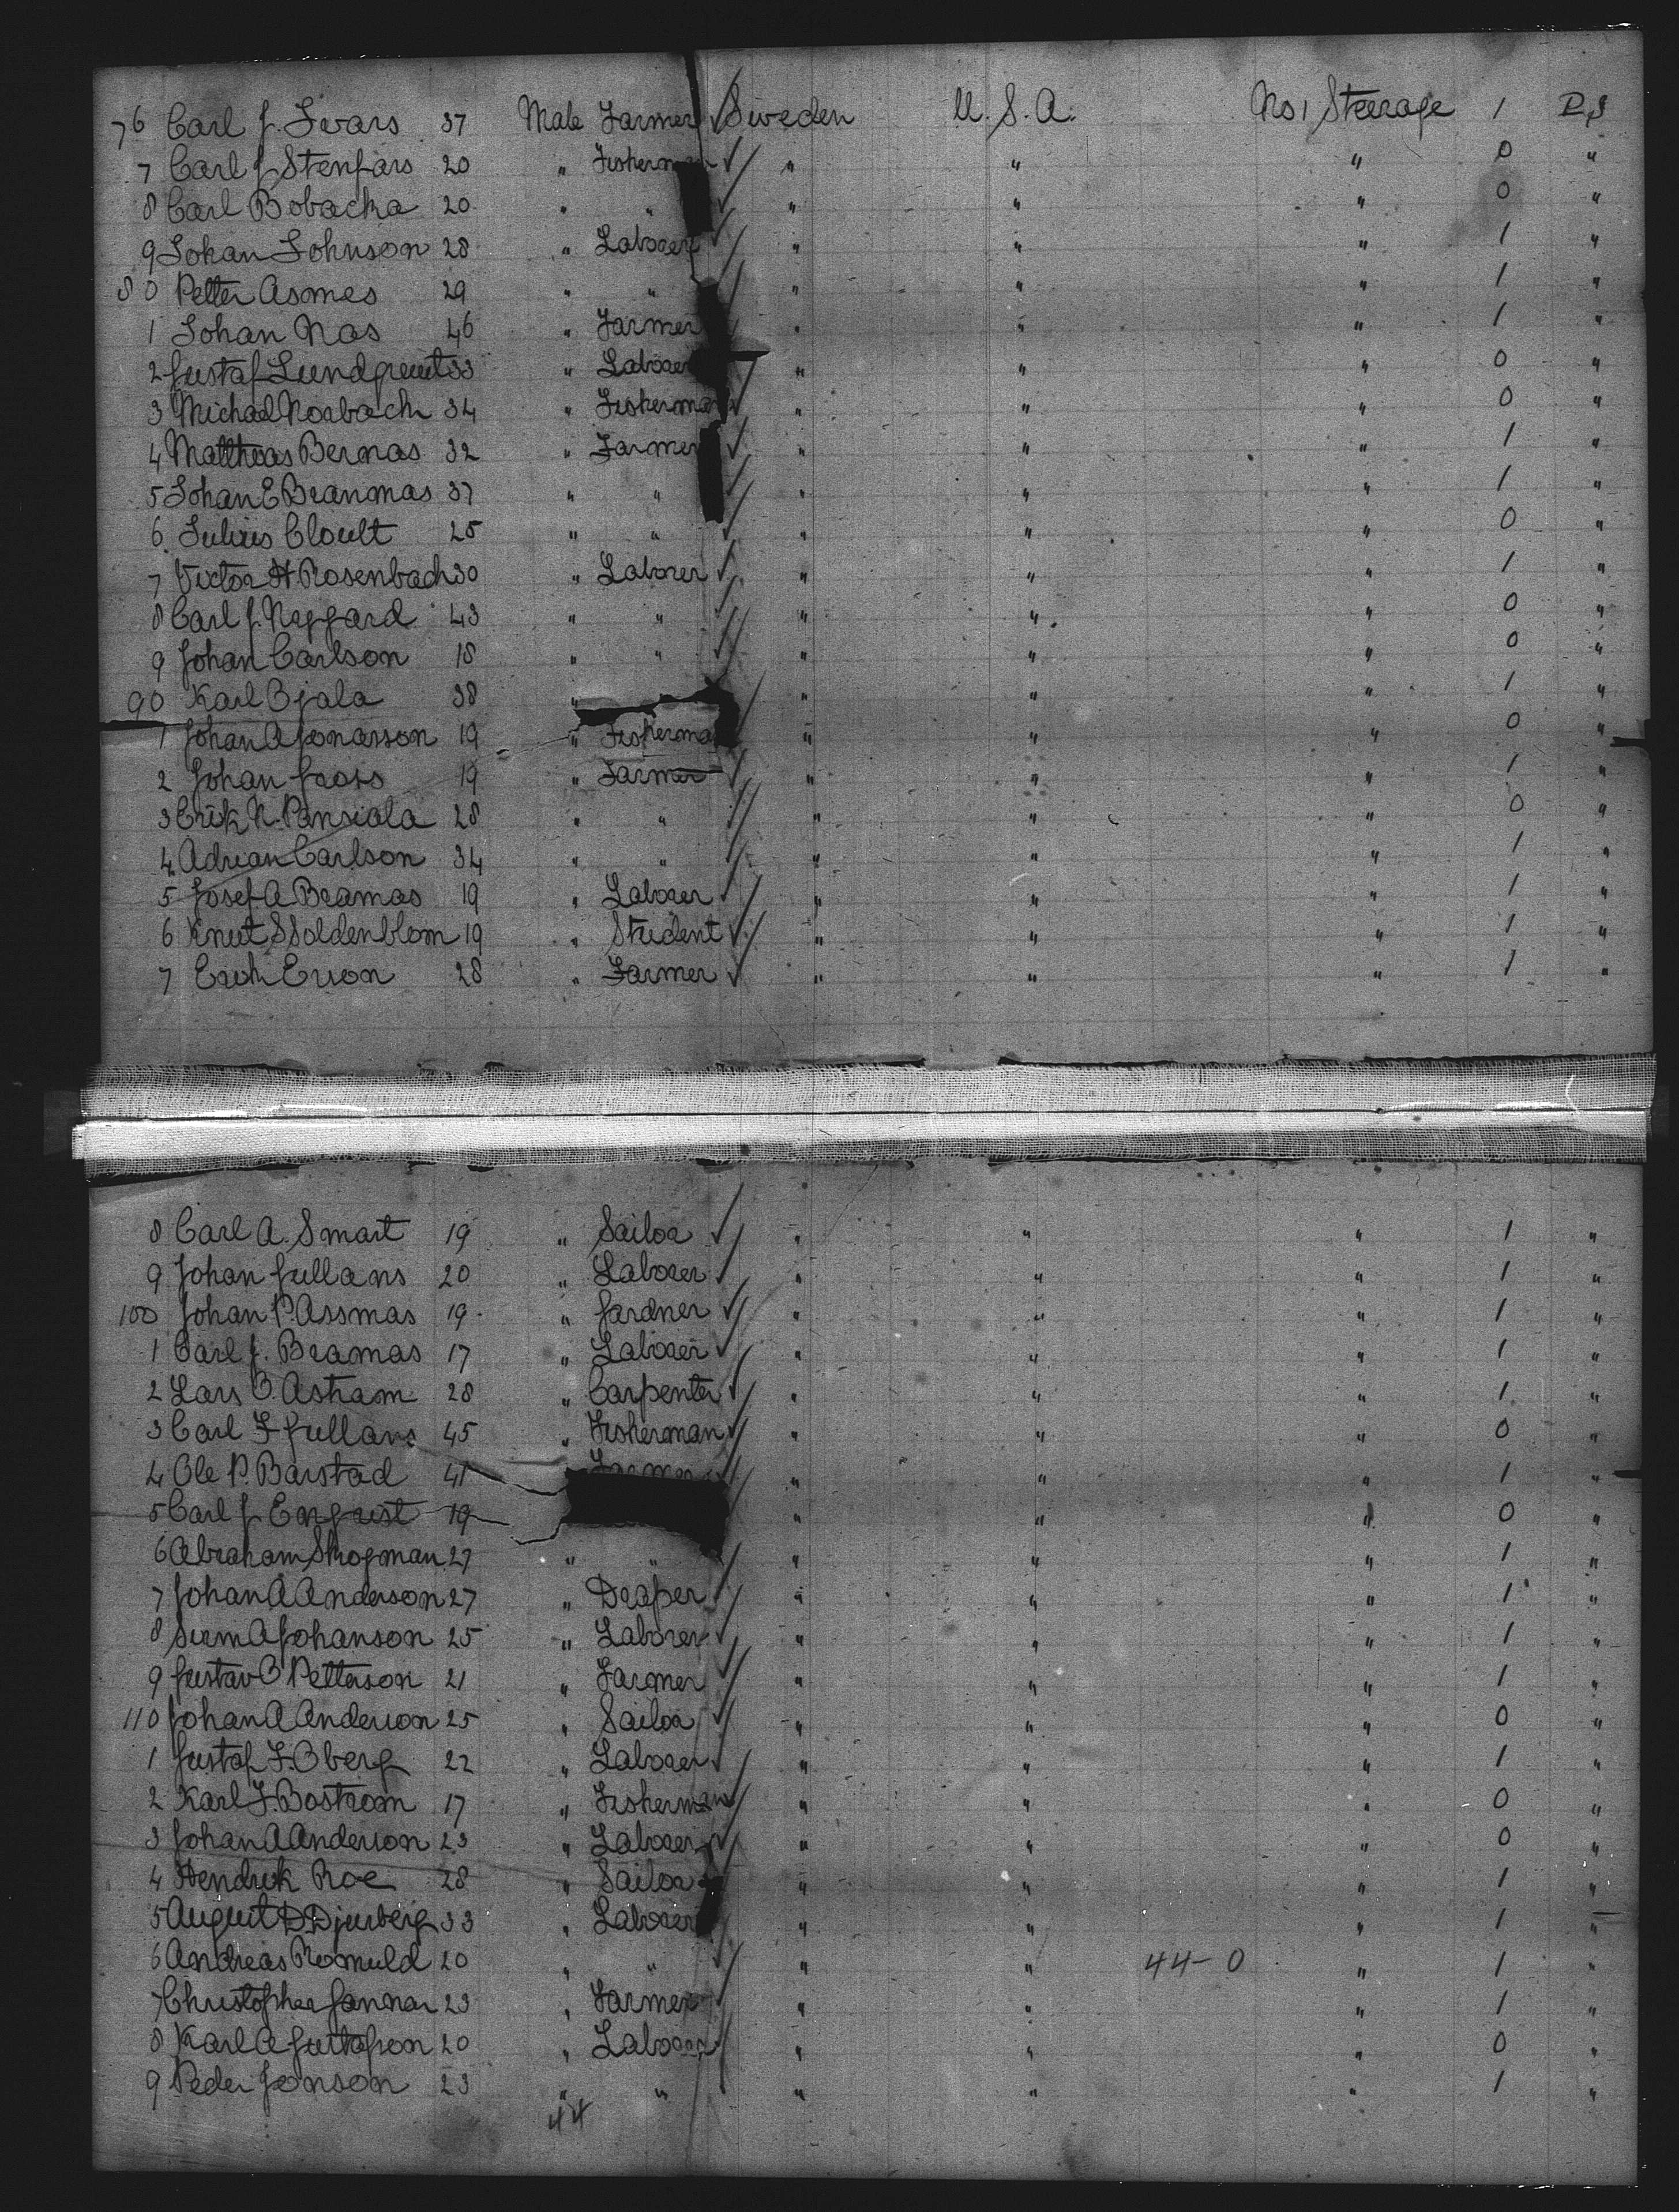 76 Carl J. Ivars 37 Male Farmer ✓ Sweden U.S.A. No 1 Steerage 1 P.S
7 Carl J Stenfars 20 " Fisherman ✓ " " " 0 "
8 Carl Bobacka 20 " " ✓ " " " 0 "
9 Johan Johnson 28 " Laborer ✓ " " " 1 "
80 Petter Asmes 29 " " ✓ " " " 1 "
1 Johan Nas 46 " Farmer ✓ " " " 1 "
2 Gustaf Lundquist 33 " Laborer ✓ " " " 0 "
3 Michael Norback 34 " Fisherman ✓ " " " 0 "
4 Matthias Bernas 32 " Farmer ✓ " " " 1 "
5 Johan E Branmas 37 " " ✓ " " " 1 "
6 Julius Cloult 25 " " ✓ " " " 0 "
7 Victor H. Rosenbach 30 " Laborer ✓ " " " 1 "
8 Carl J. Naggard 43 " " ✓ " " " 0 "
9 Johan Carlson 18 " " ✓ " " " 0 "
90 Karl Ojala 38 " ✓ " " " 1 "
1 Johan A Jonasson 19 " Fisherma " " " 0 "
2 Johan Gross 19 " Farmer ✓ " " " 1 "
3 Erik N. Pansiala 28 " " ✓ " " " 0 "
4 Adrian Carlson 34 " " ✓ " " " 1 "
5 Josef A Bramas 19 " Laborer ✓ " " " 1 "
6 Knut S Soldenblom 19 " Student ✓ " " " 1 "
7 Erick Erson 28 " Farmer ✓ " " " 1 "
8 Carl A. Smart 19 " Sailor ✓ " " " 1 "
9 Johan Gullans 20 " Laborer ✓ " " " 1 "
100 Johan P. Assmas 19 " Gardner ✓ " " " 1 "
1 Carl J. Bramas 17 " Laborer ✓ " " " 1 "
2 Lars O. Astram 28 " Carpenter ✓ " " " 1 "
3 Carl F Gullans 45 " Fisherman ✓ " " " 0 "
4 Ole P. Barstad 41 Farmer ✓ " " " 1 "
5 Carl J. Enquist 19 " " " 0 "
6 Abraham Skogman 27 " " ✓ " " " 1 "
7 Johan A Anderson 27 " Draper ✓ " " " 1 "
8 A Johanson 25 " Laborer ✓ " " " 1 "
9 Gustav O Petterson 21 " Farmer ✓ " " " 1 "
110 Johan A Anderson 25 " Sailor ✓ " " " 0 "
1 Gustaf F. Oberg 22 " Laborer ✓ " " " 1 "
2 Karl F. Bostrom 17 " Fisherman ✓ " " " 0 "
3 Johan A Anderson 23 " Laborer ✓ " " " 0 "
4 Hendrik Roe 28 " Sailor " " " 1 "
5 August D Djurberg 33 " Laborer " " " 1 "
6 Andreas Romuld 20 " " ✓ " " 44-0 " 1 "
7 Christopher Jannar 23 " Farmer ✓ " " " 1 "
8 Karl A Gustafson 20 " Laborer ✓ " " " 0 "
9 Peder Jonson 23 " " " " " 1 "
44